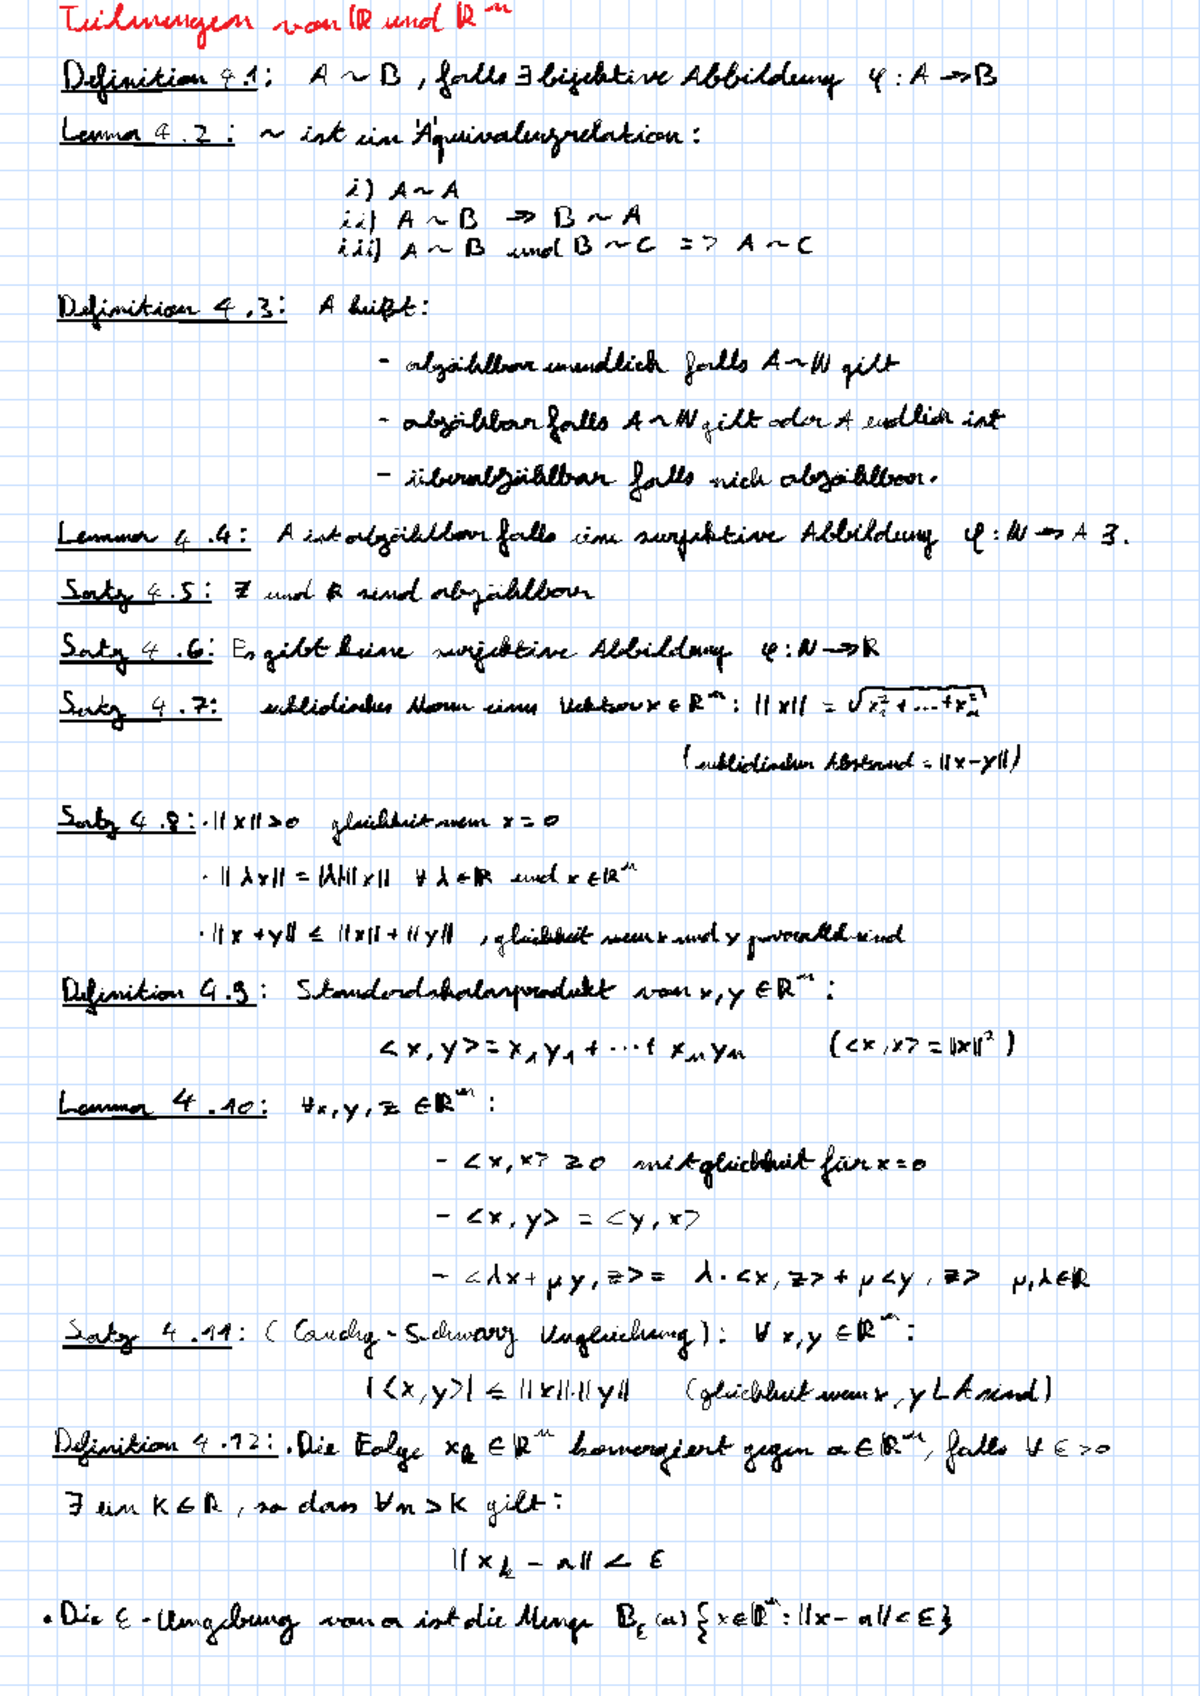 Teilmengen von ℝ und ℝⁿ
Definition 4.1: A ~ B, falls ∃ bijektive Abbildung φ: A → B
Lemma 4.2: ~ ist ein Äquivalenzrelation:
i) A ~ A
ii) A ~ B => B ~ A
iii) A ~ B und B ~ C => A ~ C
Definition 4.3: A heißt:
- abzählbar unendlich falls A ~ ℕ gilt
- abzählbar falls A ~ ℕ gilt oder A endlich ist
- überabzählbar falls nich abzählbar.
Lemma 4.4: A ist abzählbar falls eine surjektive Abbildung φ: ℕ → A ∃.
Satz 4.5: ℤ und ℝ sind abzählbar
Satz 4.6: Es gibt keine surjektive Abbildung φ: ℕ → ℝ
Satz 4.7: euklidisches Norm eines Vektors x ∈ ℝⁿ: ||x|| = √(x₁² + ... + xₙ²)
(euklidischer Abstand = ||x-y||)
Satz 4.8: · ||x|| ≥ 0 gleichheit wenn x = 0
· ||λx|| = |λ|·||x|| ∀ λ ∈ ℝ und x ∈ ℝⁿ
· ||x + y|| ≤ ||x|| + ||y||, gleichheit wenn x und y parallel sind
Definition 4.9: Standardskalarprodukt von x, y ∈ ℝⁿ:
<x, y> = x₁y₁ + ... + xₙyₙ (<x, x> = ||x||²)
Lemma 4.10: ∀x, y, z ∈ ℝⁿ:
- <x, x> ≥ 0 mit gleichheit für x = 0
- <x, y> = <y, x>
- <λx + μy, z> = λ·<x, z> + μ<y, z> μ, λ ∈ ℝ
Satz 4.11: (Cauchy-Schwarz Ungleichung): ∀ x, y ∈ ℝⁿ:
|<x, y>| ≤ ||x||·||y|| (gleichheit wenn x, y L A sind)
Definition 4.12: · Die Folge xₖ ∈ ℝⁿ konvergiert gegen a ∈ ℝⁿ, falls ∀ ε > 0
∃ ein K ∈ ℝ, so dass ∀n > K gilt:
||xₖ - a|| < ε
· Die ε-Umgebung von a ist die Menge B_ε(a) {x ∈ ℝⁿ: ||x - a|| < ε}